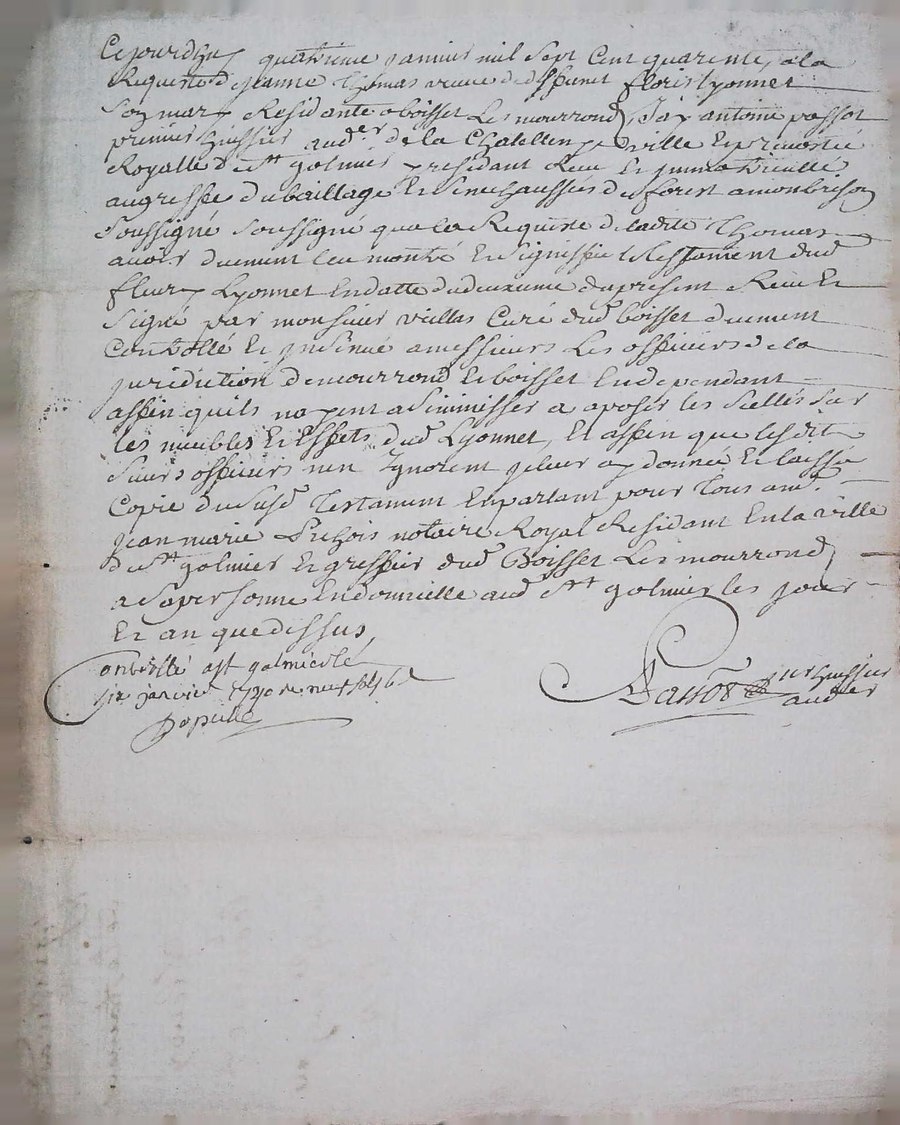 Cejourdhuy quatrieme janvier mil sept cent quarente, a la
Requeste de jeanne Thomas veuve de deffunct fleury Lyonnet
Son mary Residante a boisset Les mourrond, jay antoine passot
premier huissier aud.er de la Chatellenye ville et prevosté
Royalle de st galmier y residant Receu et immatriculle
au greffe du baillage et Senechaussée de forest a monbrison
Soussigné soussigné que a la Requeste de ladite Thomas
avoir duement leu montré et signiffié le testament dud
fleury Lyonnet en datte du deuxieme du present Receu Et
Signé par monsieur viallas Curé dud boisset duement
Controllé et insinué a messieurs les officiers de la
juridiction de mourrond et boisset en dependant
affin quils nayent a Simmisser a aposer les scellés sur
les meubles et Effets dud Lyonnet, et affin que lesdit
Sieurs officiers nen Ignorent je leur ay donnée et laissé
Copie du susd Testament en parlant pour tous a me
jean marie notaire Royal Residant en la ville
de st galmier et greffier dud Boisset Les mourrond,
a Sa personne en domicille aud st galmier les jour
Et an que dessus,
Controllé a st galmier le
janvier 1740 Re neuf sols 6d
Passot 1er huissier
aud.er